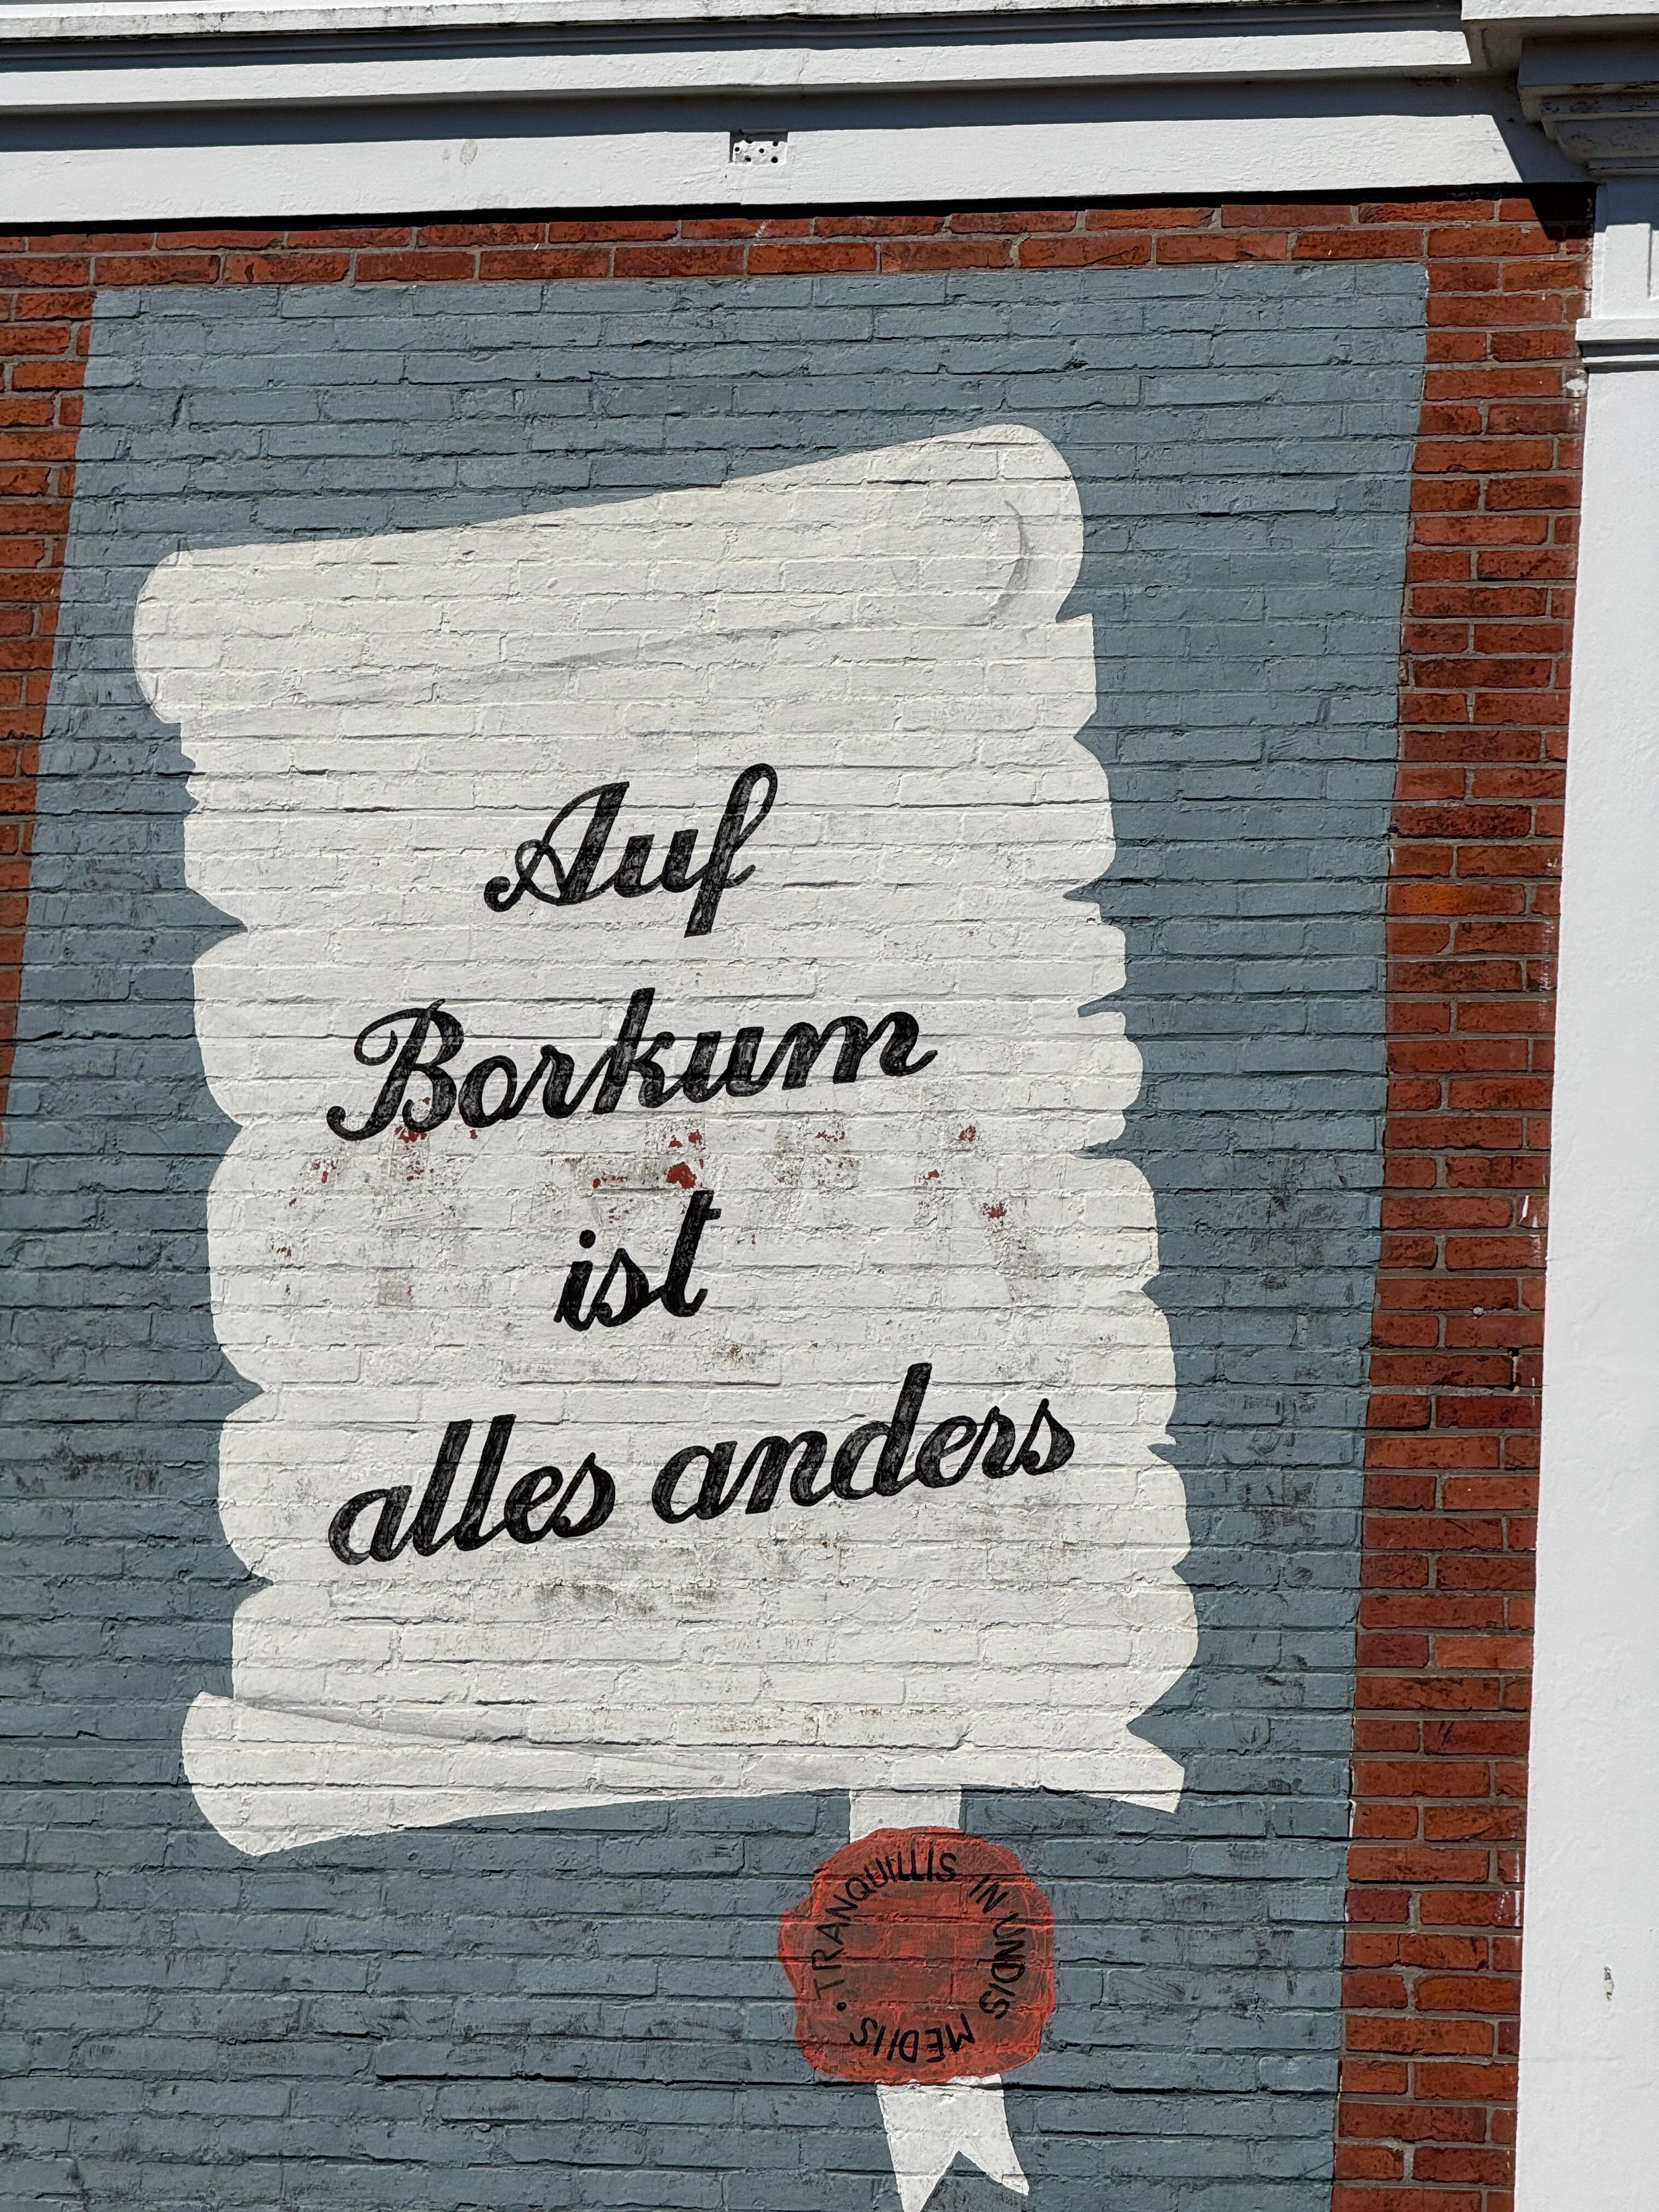 Auf
Borkum
ist
alles anders
· TRANQUILLIS IN UNDIS MEDIIS